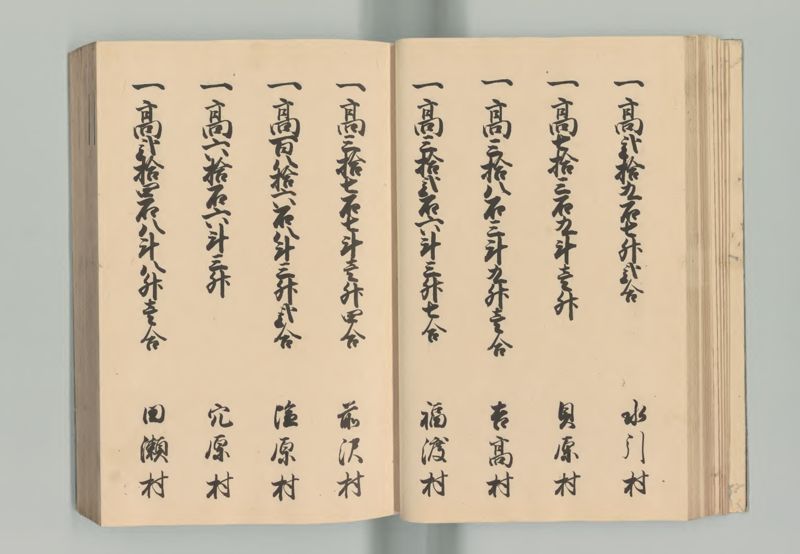 一高弐拾九石七升弐合 水引村
一高七拾三石九斗壱升 貝原村
一高三拾八石三斗九升壱合 吉高村
一高三拾弐石六斗三升七合 福渡村
一高三拾七石七斗壱升四合 前沢村
一高百八拾六石八斗三升弐合 塩原村
一高六拾石六斗三升 穴原村
一高弐拾四石八斗八升壱合 田瀬村